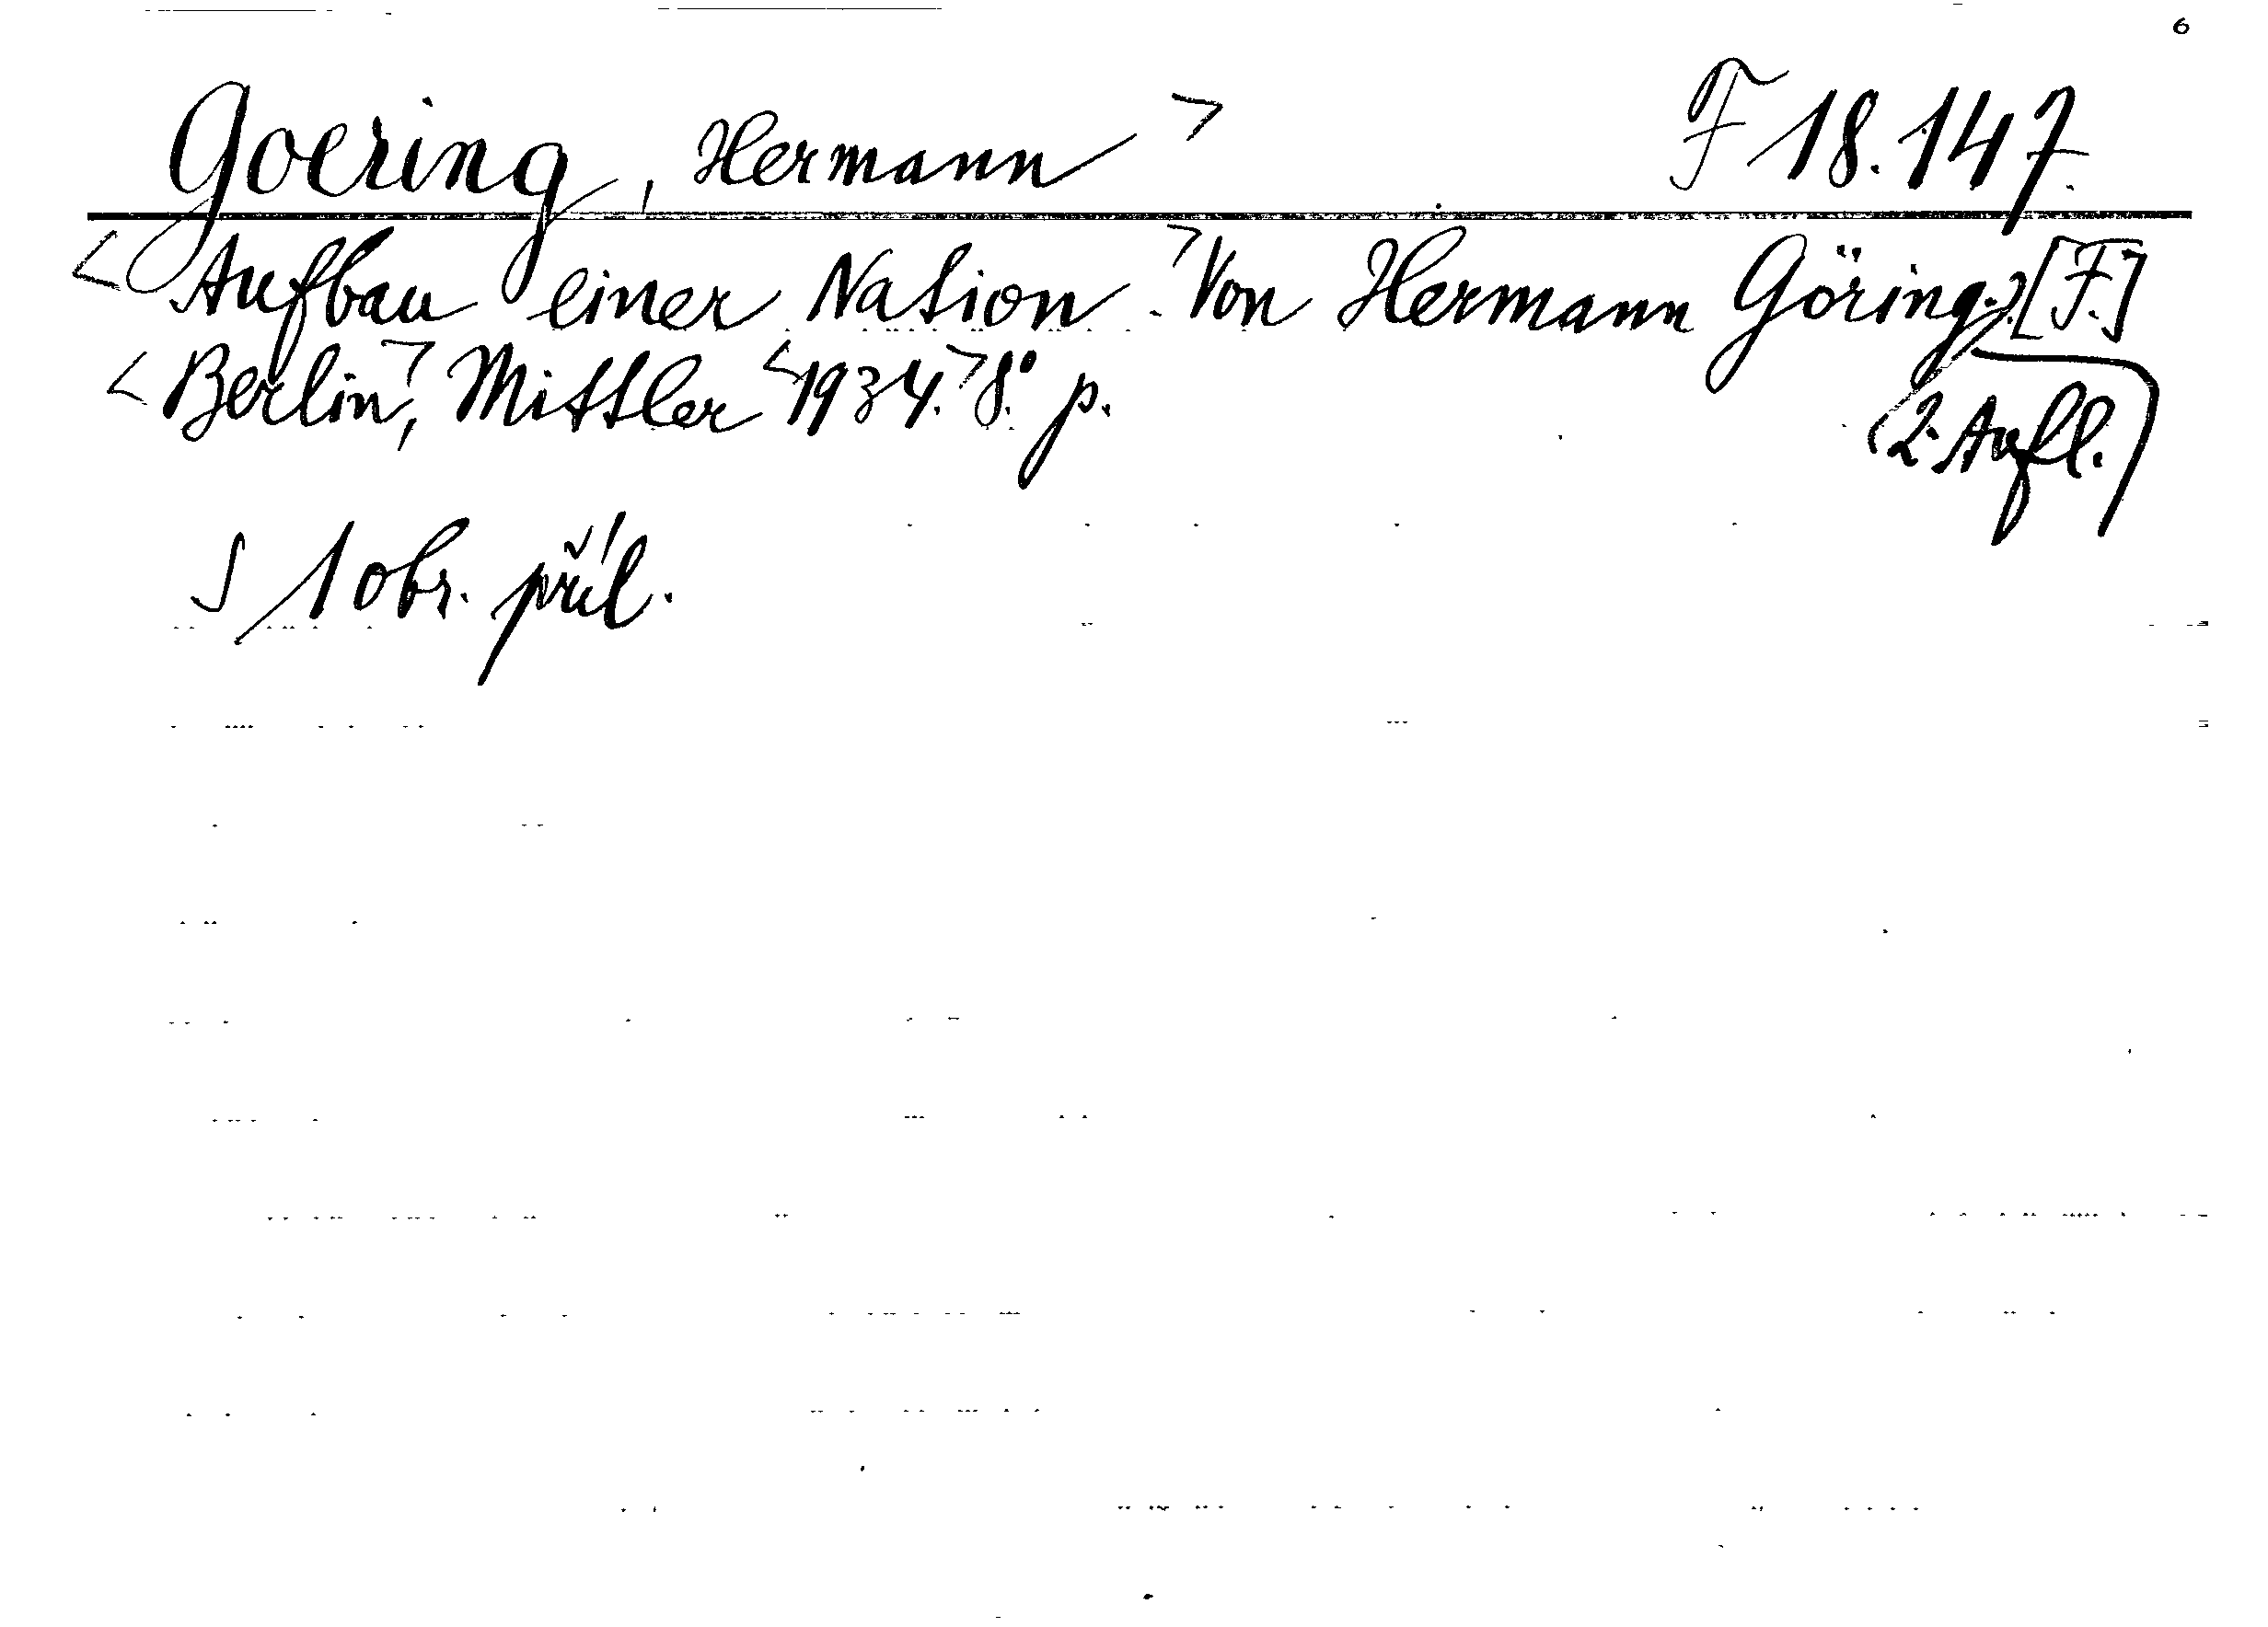 6
Goering, Hermann> F 18.147.
<Aufbau einer Nation.> Von Hermann Göring.) [F.]
<Berlin>, Mittler <1934.> 8°. p. (2. Aufl.
S 1 obr. příl.